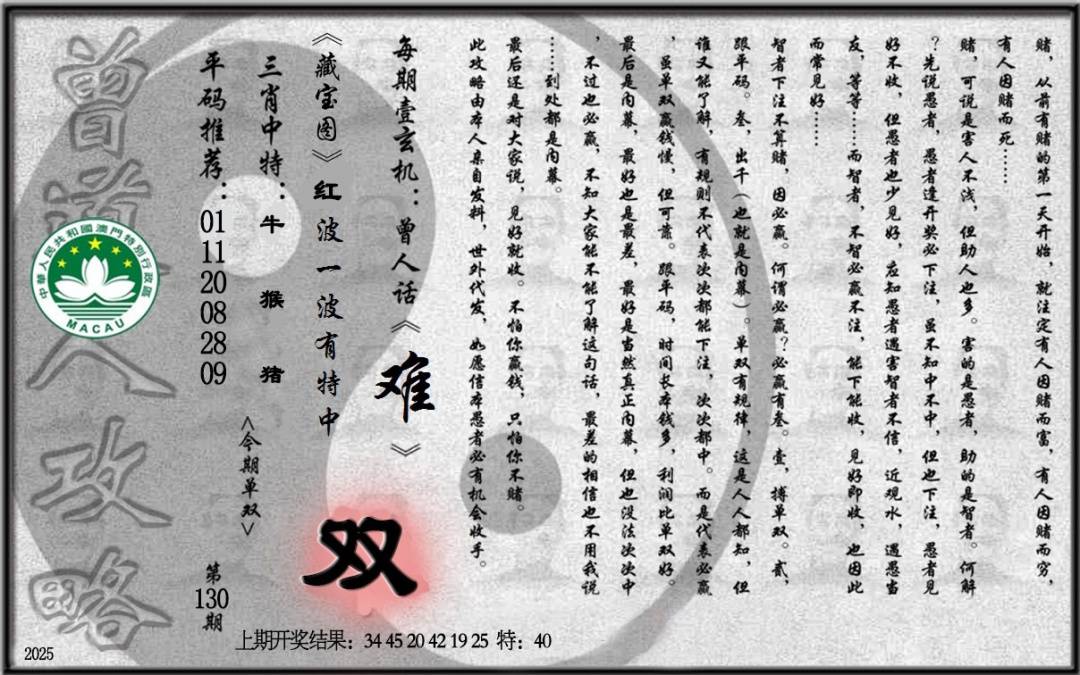 赌，从前有赌的第一天开始，就注定有人因赌而富，有人因赌而穷，
有人因赌而死……
赌，可说是害人不浅，但助人也多。害的是愚者，助的是智者。何解
？先说愚者，愚者逢开奖必下注，虽不知中不中，但也下注，愚者见
好不收，但愚者也少见好，应知愚者遇害智者不信，近观水，遇愚当
友，等等……而智者，不智必赢不注，能下能收，见好即收，也因此
而常见好……
智者下注不算赌，因必赢。何谓必赢？必赢有叁。壹，搏单双。贰，
跟平码。叁，出千（也就是内幕）。单双有规律，这是人人都知，但
谁又能了解，有规则不代表次次都能下注，次次都中。而是代表必赢
，虽单双赢钱慢，但可靠。跟平码，时间长本钱多，利润比单双好。
最后是内幕，最好也是最差，最好是当然真正内幕，但也没法次次中
，不过也必赢，不知大家能不能了解这句话，最差的相信也不用我说
……到处都是内幕。
最后还是对大家说，见好就收。不怕你赢钱，只怕你不赌。
此攻略由本人亲自发料，世外代发，如愿信本愚者必有机会收手。
每期壹玄机：曾人话《难》
《藏宝图》红波一波有特中
双
三肖中特：牛 猴 猪
<今期单双>
平码推荐：01 11 20 08 28 09
第130期
曾道人攻略
中華人民共和國澳門特別行政區
MACAU
上期开奖结果：34 45 20 42 19 25 特：40
2025